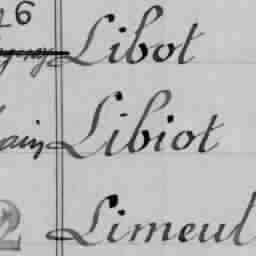 26
Libot
ain Libiot
2 Limeul